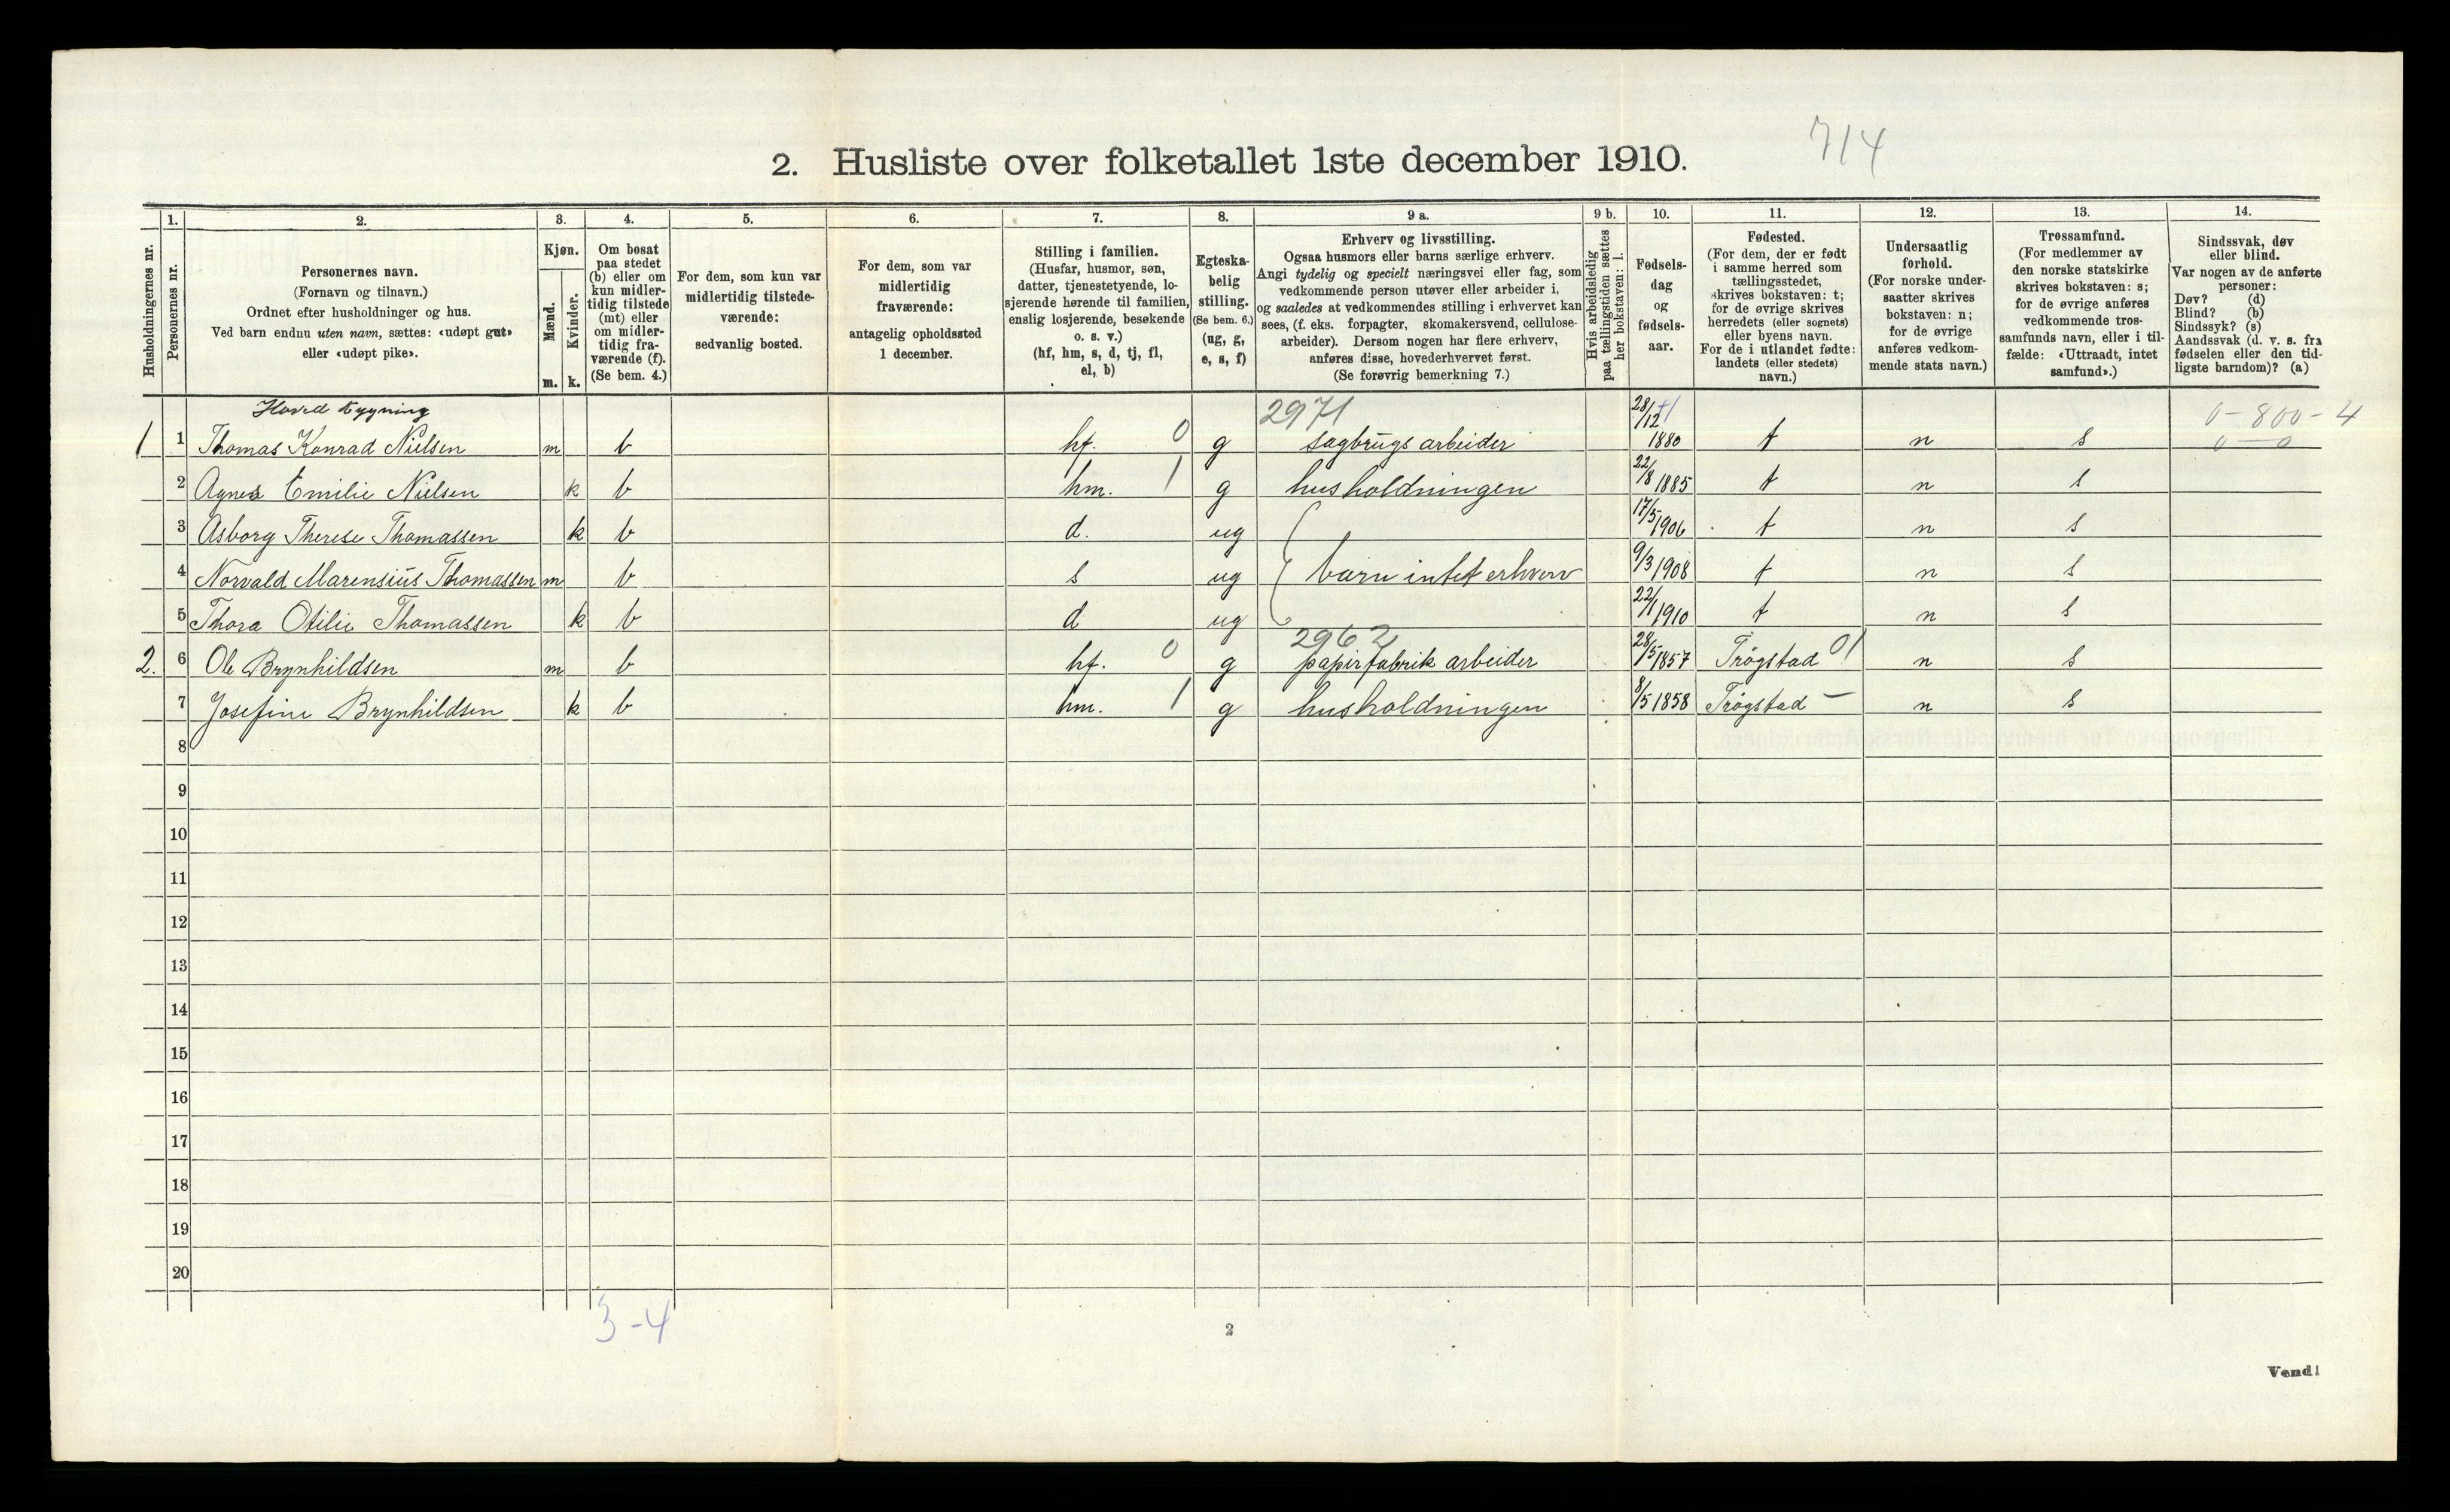 714
2. Husliste over folketallet 1ste december 1910.
Husholdningernes nr.
1.
Personernes nr.
2.
Personernes navn.
(Fornavn og tilnavn.)
Ordnet efter husholdninger og hus.
Ved barn endnu uten navn, sættes: «udøpt gut»
eller «udøpt pike».
3.
Kjøn.
Mænd.
Kvinder.
m. k.
4.
Om bosat
paa stedet
(b) eller om
kun midler-
tidig tilstede
(mt) eller
om midler-
tidig fra-
værende (f).
(Se bem. 4.)
5.
For dem, som kun var
midlertidig tilstede-
værende:
sedvanlig bosted.
6.
For dem, som var
midlertidig
fraværende:
antagelig opholdssted
1 december.
7.
Stilling i familien.
(Husfar, husmor, søn,
datter, tjenestetyende, lo-
sjerende hørende til familien,
enslig losjerende, besøkende
o. s. v.)
(hf, hm, s, d, tj, fl,
el, b)
8.
Egteska-
belig
stilling.
(Se bem. 6.)
(ug, g,
e, s, f)
9 a.
Erhverv og livsstilling.
Ogsaa husmors eller barns særlige erhverv.
Angi tydelig og specielt næringsvei eller fag, som
vedkommende person utøver eller arbeider i,
og saaledes at vedkommendes stilling i erhvervet kan
sees, (f. eks. forpagter, skomakersvend, cellulose-
arbeider). Dersom nogen har flere erhverv,
anføres disse, hovederhvervet først.
(Se forøvrig bemerkning 7.)
9 b.
Hvis arbeidsledig
paa tællingstiden sættes
her bokstaven: l.
10.
Fødsels-
dag
og
fødsels-
aar.
11.
Fødested.
(For dem, der er født
i samme herred som
tællingsstedet,
skrives bokstaven: t;
for de øvrige skrives
herredets (eller sognets)
eller byens navn.
For de i utlandet fødte:
landets (eller stedets)
navn.)
12.
Undersaatlig
forhold.
(For norske under-
saatter skrives
bokstaven: n;
for de øvrige
anføres vedkom-
mende stats navn.)
13.
Trossamfund.
(For medlemmer av
den norske statskirke
skrives bokstaven: s;
for de øvrige anføres
vedkommende tros-
samfunds navn, eller i til-
fælde: «Uttraadt, intet
samfund».)
14.
Sindssvak, døv
eller blind.
Var nogen av de anførte
personer:
Døv? (d)
Blind? (b)
Sindssyk? (s)
Aandssvak (d. v. s. fra
fødselen eller den tid-
ligste barndom)? (a)
Hoved bygning 2971 0-800-4
1 1 Thomas Konrad Nielsen m b hf. 0 g sagbrugs arbeider 28/12 1880 t n s 0-0
2 Agnes Emilie Nielsen k b hm. 1 g husholdningen 22/8 1885 t n s
3 Asborg Therese Thomassen k b d. ug 17/5 1906 t n s
4 Norvald Marensius Thomassen m b s ug barn intet erhverv 9/3 1908 t n s
5 Thora Otilie Thomassen k b d ug 22/1 1910 t n s
2962
2. 6 Ole Brynhildsen m b hf. 0 g papirfabrik arbeider 28/5 1857 Trøgstad 01 n s
7 Josefine Brynhildsen k b hm. 1 g husholdningen 8/5 1858 Trøgstad — n s
8
9
10
11
12
13
14
15
16
17
18
19
20
3-4
2
Vend!